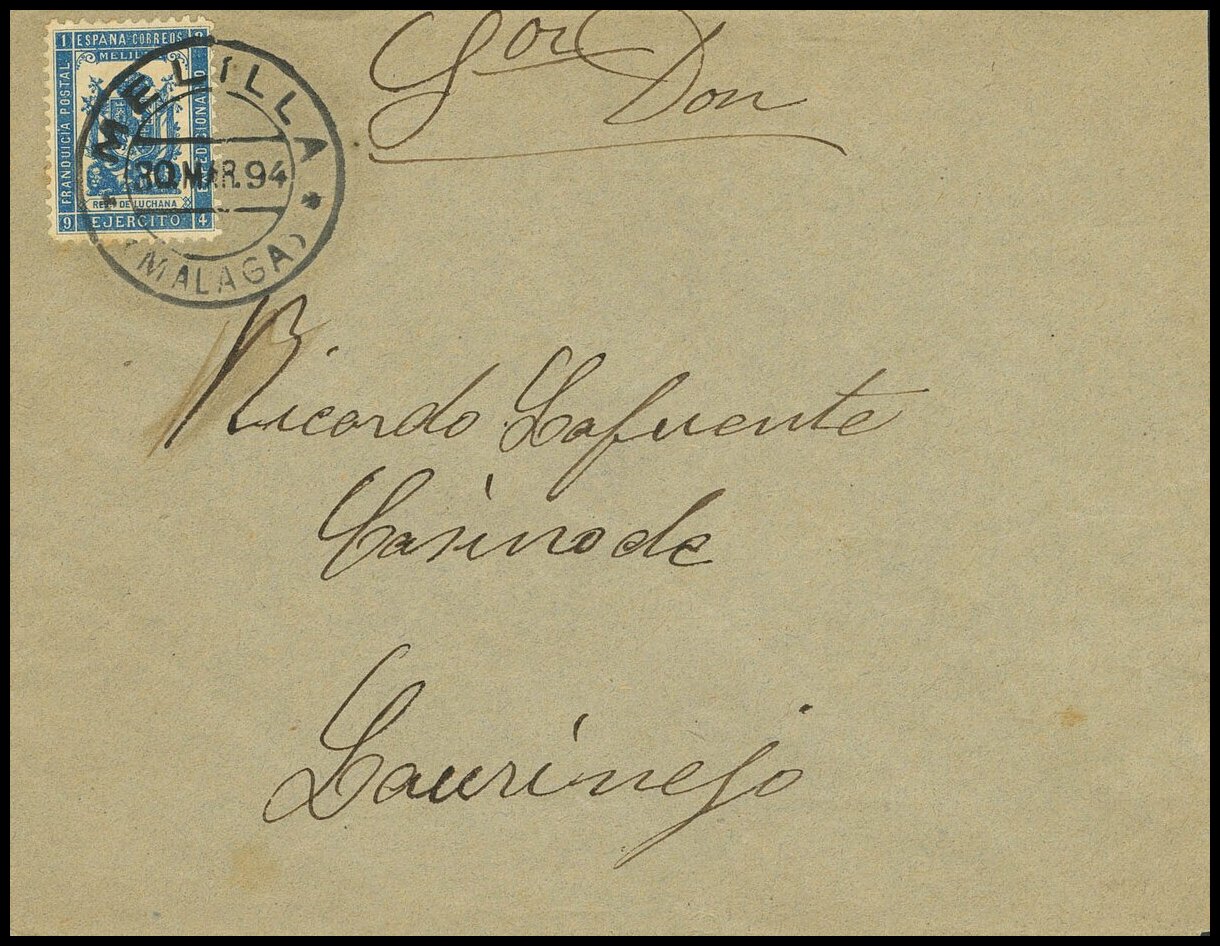 1 ESPAÑA-CORREOS 8
MELILLA
FRANQUICIA POSTAL
EXPEDICIONARIO
REGTO DE LUCHANA
9 EJERCITO 4
MELILLA
30 MAR. 94
(MALAGA)
Sor
Don
Ricardo Lafuente
Casino de
Laurinejo